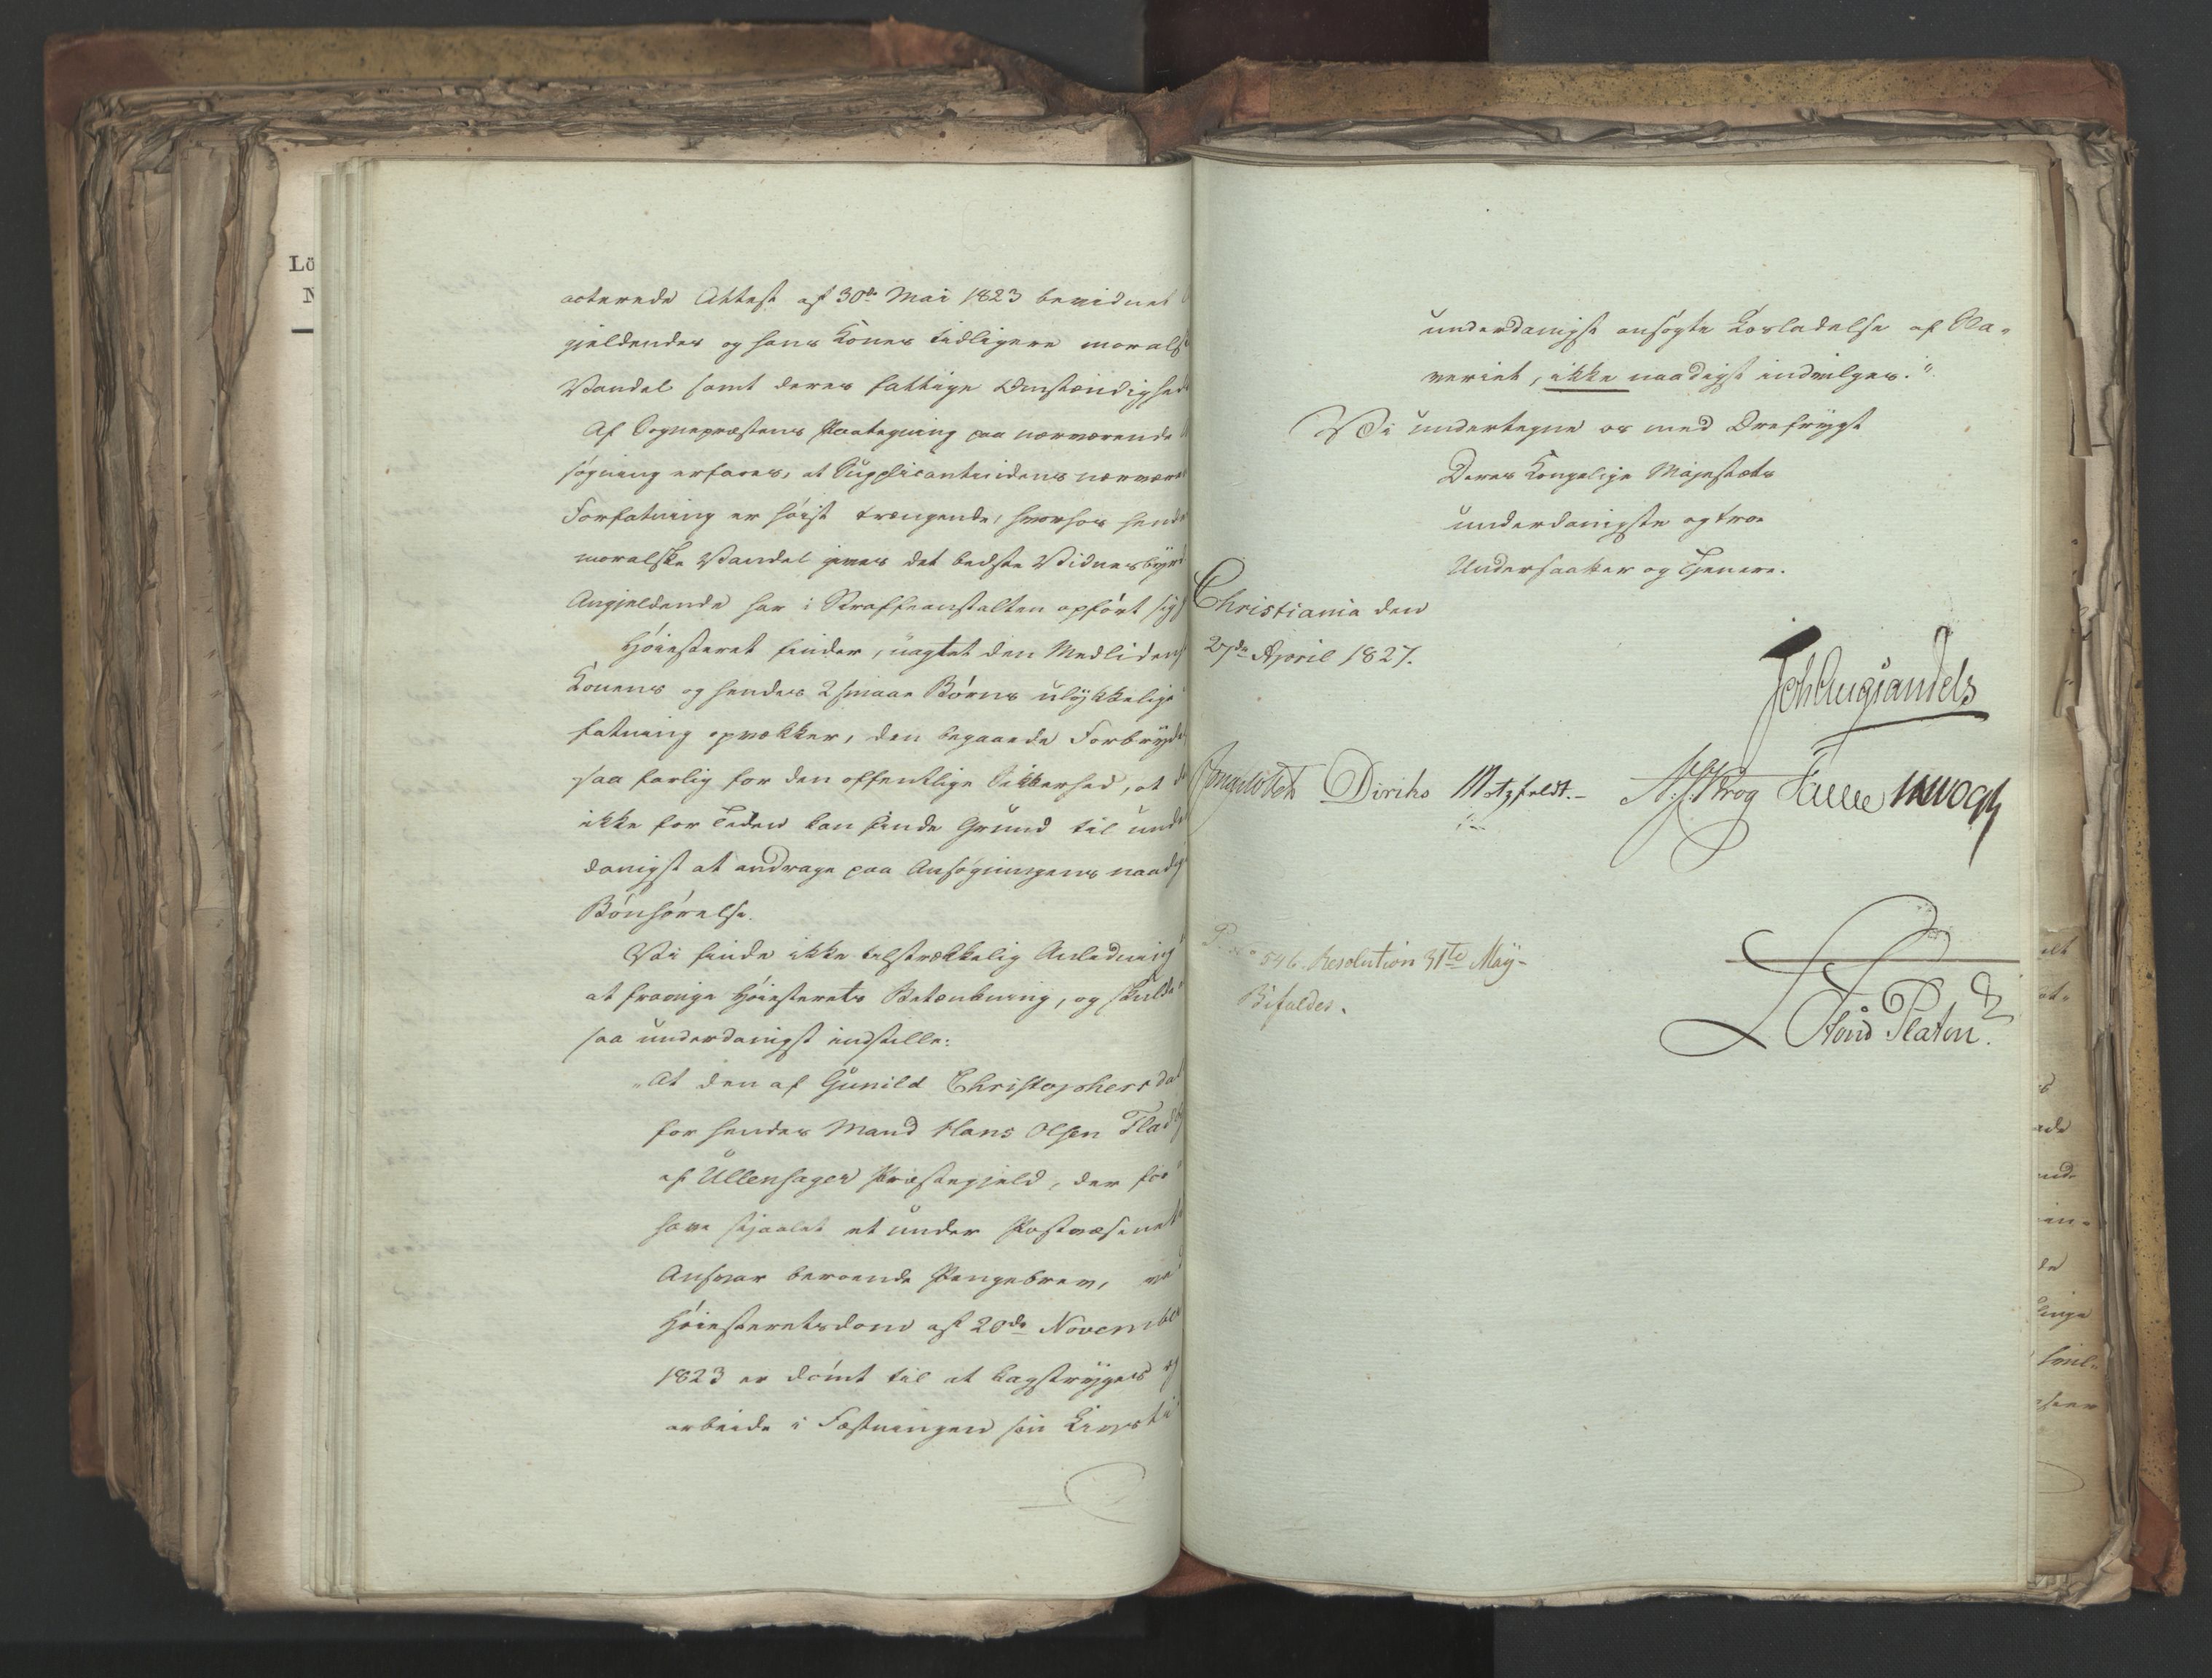 Lö
N
acterede Attest af 30te Mai 1823 bevidnet
gjeldendes og hans Kones tidligere moralsk
Vandel samt deres fattige Omstændighed
Af Sognepræstens Paategning paa nærværende
søgning erfares, at Supplicantindens nærvære
Forfatning er høist trængende, hvorhos hend
moralske Vandel gives det bedste Vidnesbyrd
Angjeldende har i Straffeanstalten opført sig
Høiesteret finder, uagtet den Medlidenh
Konens og hendes 2 smaae Børns ulykkelige
fatning opvækker, den begaaede Forbryde
saa farlig for den offentlige Sikkerhed, at
ikke for Tiden kan finde Grund til unde
danigst at andrage paa Ansøgningens naadig
Bønhørelse.
Vi finde ikke tilstrækkelig Anledning
at fravige Høiesterets Betænkning, og skulde
saa underdanigst indstille:
"At den af Gunild Christophersdat
for hendes Mand Hans Olsen Flad
af Ullensager Præstegjeld, der for
have stjaalet et under Postvæsenet
Ansvar beroende Pengebrev, ve
Høiesteretsdom af 20de November
1823 er dømt til at kagstryges og
arbeide i Fæstningen sin Livsti
underdanigst ansøgte Løsladelse af Sla-
veriet, ikke naadigst indvilges."
Vi undertegne os med Ærefrygt
Deres Kongelige Majestæts
underdanigste og troe
Undersaatter og Tjenere.
Christiania den
27de April 1827.
Joh Aug Sandels
Diriks Motzfeldt.- Krog Fasting
546. Resolution 31te Maÿ-
Bifaldes.
Platou.